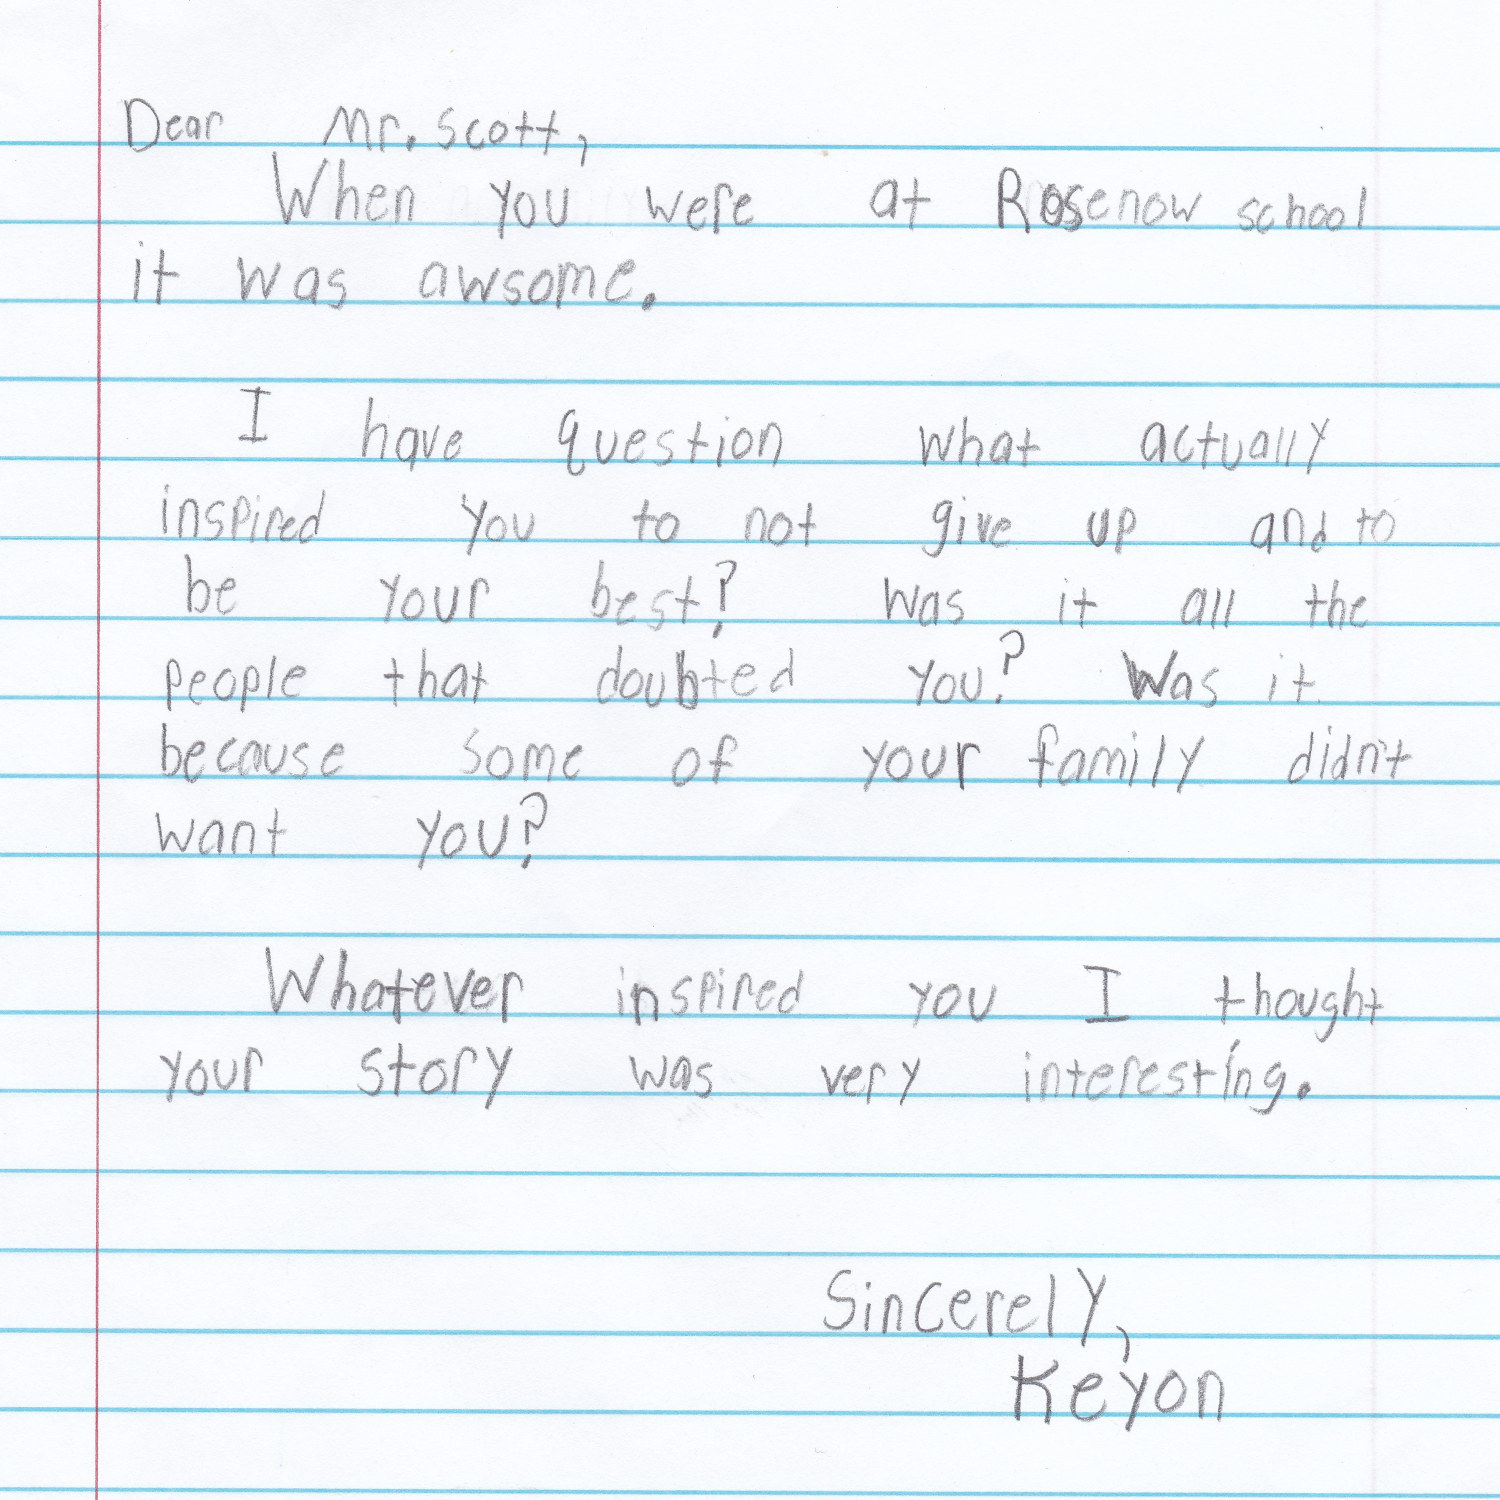 Dear Mr. Scott,
When you were at Rosenow school
it was awsome.
I have question what actually
inspired you to not give up and to
be your best? Was it all the
people that doubted you? Was it
because some of your family didn't
want you?
Whatever inspired you I thought
your story was very interesting.
Sincerely,
Keyon